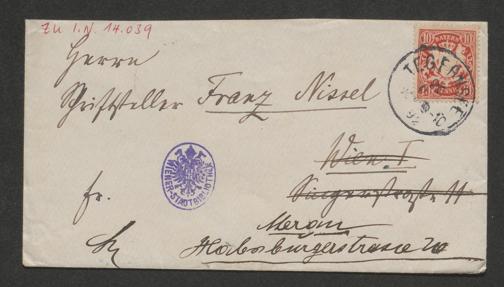 Zu I.N. 14.039
Herrn
Schriftsteller Franz Nissel
Wien I
Singerstraße 11
fr.
Meran
Habsburgerstrasse 20
WIENER-STADTBIBLIOTHEK
10 BAYERN 10
TEGERNSEE
92